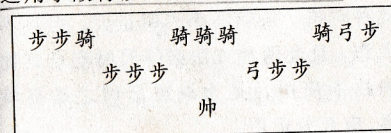 步步骑 骑骑骑 骑弓步
步步步 弓步步
帅